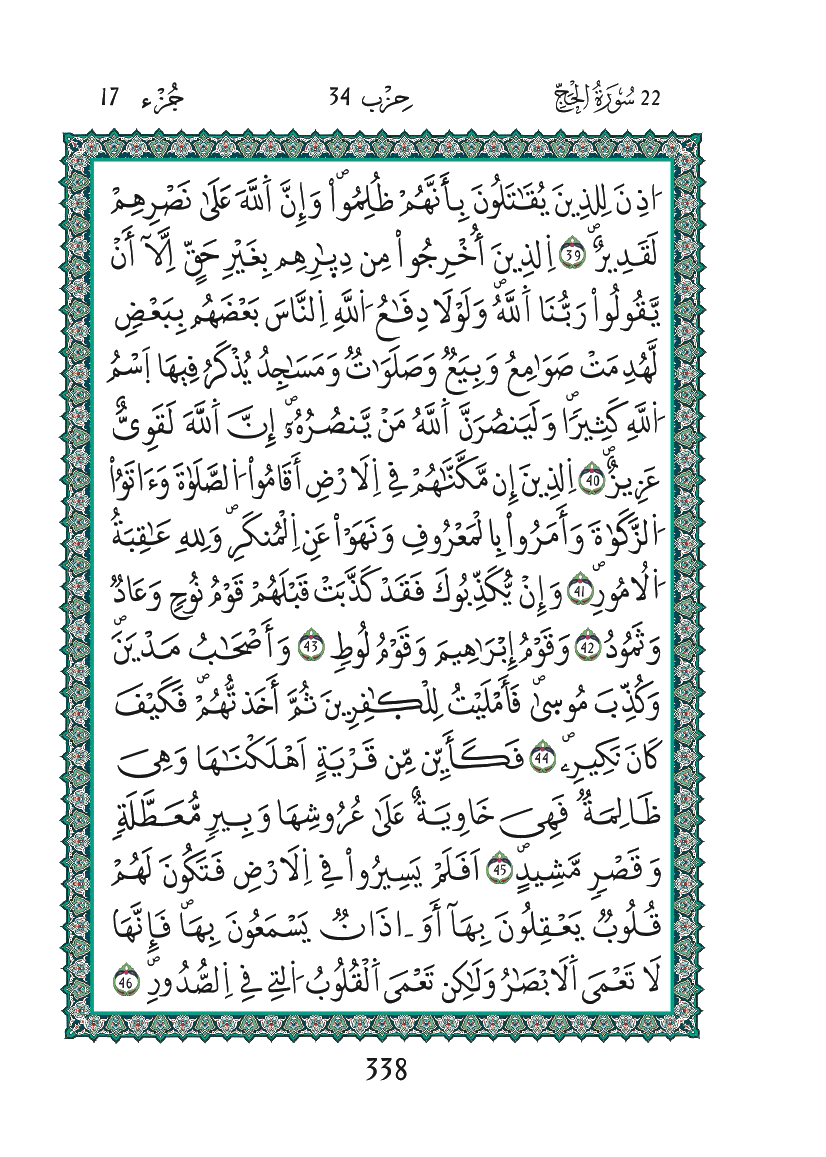 22 سُورَةُ الْحَجِّ
حِزْب 34
جُزْء 17
اُذِنَ لِلذِينَ يُقَٰتَلُونَ بِأَنَّهُمْ ظُلِمُواْۖ وَإِنَّ اَ۬للَّهَ عَلَىٰ نَصْرِهِمْ
لَقَدِيرٌۖ 39 اِ۬لذِينَ أُخْرِجُواْ مِن دِيٰ۪رِهِم بِغَيْرِ حَقٍّ اِلَّآ أَنْ
يَّقُولُواْ رَبُّنَا اَ۬للَّهُۖ وَلَوْلَا دِفَٰعُ اُ۬للَّهِ اِ۬لنَّاسَ بَعْضَهُم بِبَعْضٍ
لَّهُدِمَتْ صَوَٰمِعُ وَبِيَعٌ وَصَلَوَٰتٌ وَمَسَٰجِدُ يُذْكَرُ فِيهَا اَ۪سْمُ
اُ۬للَّهِ كَثِيراًۖ وَلَيَنصُرَنَّ اَ۬للَّهُ مَنْ يَّنصُرُهُۥٓۖ إِنَّ اَ۬للَّهَ لَقَوِيٌّ
عَزِيزٌۖ 40 اِ۬لذِينَ إِن مَّكَّنَّٰهُمْ فِے اِ۬لَارْضِ أَقَامُواْ اُ۬لصَّلَوٰةَ وَءَاتَوُاْ
اُ۬لزَّكَوٰةَ وَأَمَرُواْ بِالْمَعْرُوفِ وَنَهَوْاْ عَنِ اِ۬لْمُنكَرِۖ وَلِلهِ عَٰقِبَةُ
اُ۬لُامُورِۖ 41 وَإِنْ يُّكَذِّبُوكَ فَقَدْ كَذَّبَتْ قَبْلَهُمْ قَوْمُ نُوحٍ وَعَادٌ
وَثَمُودُ 42 وَقَوْمُ إِبْرَٰهِيمَ وَقَوْمُ لُوطٍ 43 وَأَصْحَٰبُ مَدْيَنَۖ
وَكُذِّبَ مُوس۪يٰۖ فَأَمْلَيْتُ لِلْكٰ۪فِرِينَ ثُمَّ أَخَذتُّهُمْۖ فَكَيْفَ
كَانَ نَكِيرِۦۖ 44 فَكَأَيِّن مِّن قَرْيَةٍ اَهْلَكْنَٰهَا وَهِيَ
ظَالِمَةٌۖ فَهِيَ خَاوِيَةٌ عَلَىٰ عُرُوشِهَا وَبِيرٍ مُّعَطَّلَةٍ
وَقَصْرٍ مَّشِيدٍۖ 45 اَفَلَمْ يَسِيرُواْ فِے اِ۬لَارْضِ فَتَكُونَ لَهُمْ
قُلُوبٌ يَعْقِلُونَ بِهَآ أَوَ ـاذَانٌ يَسْمَعُونَ بِهَاۖ فَإِنَّهَا
لَا تَعْمَى اَ۬لَابْصَٰرُ وَلَٰكِن تَعْمَى اَ۬لْقُلُوبُ اُ۬لتِے فِے اِ۬لصُّدُورِۖ 46
338